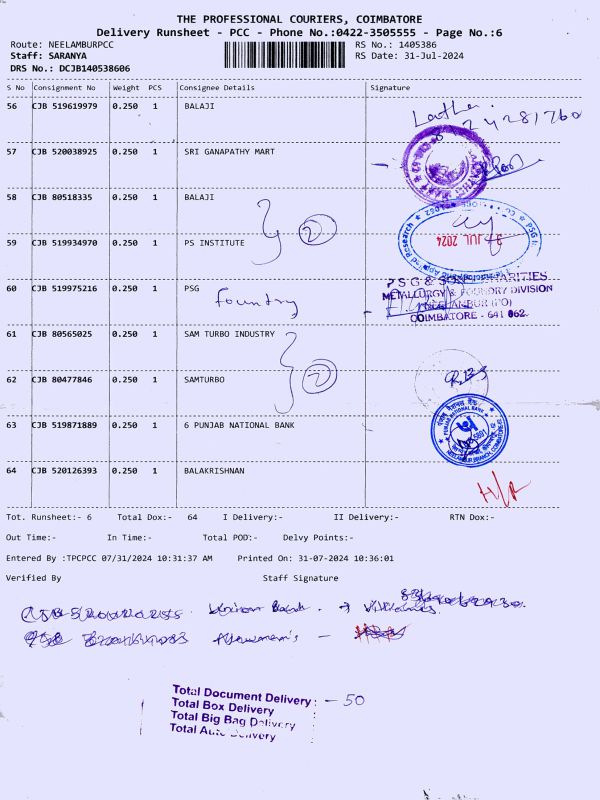 THE PROFESSIONAL COURIERS, COIMBATORE
Delivery Runsheet - PCC - Phone No.:0422-3505555 - Page No.:6
Route: NEELAMBURPCC RS No.: 1405386
Staff: SARANYA RS Date: 31-Jul-2024
DRS No.: DCJB140538606
S No Consignment No Weight PCS Consignee Details Signature
56 CJB 519619979 0.250 1 BALAJI
57 CJB 520038925 0.250 1 SRI GANAPATHY MART
58 CJB 80518335 0.250 1 BALAJI
59 CJB 519934970 0.250 1 PS INSTITUTE
2
JUL 2024
60 CJB 519975216 0.250 1 PSG
Foundry
PSG & SONS CHARITIES
METALLURGY & FOUNDRY DIVISION
NEELAMBUR (PO)
COIMBATORE - 641 062.
61 CJB 80565025 0.250 1 SAM TURBO INDUSTRY
62 CJB 80477846 0.250 1 SAMTURBO
2
63 CJB 519871889 0.250 1 6 PUNJAB NATIONAL BANK
64 CJB 520126393 0.250 1 BALAKRISHNAN
Tot. Runsheet:- 6 Total Dox:- 64 I Delivery:- II Delivery:- RTN Dox:-
Out Time:- In Time:- Total POD:- Delvy Points:-
Entered By :TPCPCC 07/31/2024 10:31:37 AM Printed On: 31-07-2024 10:36:01
Verified By Staff Signature
Total Document Delivery : - 50
Total Box Delivery :
Total Big Bag Delivery
Total Auto Delivery